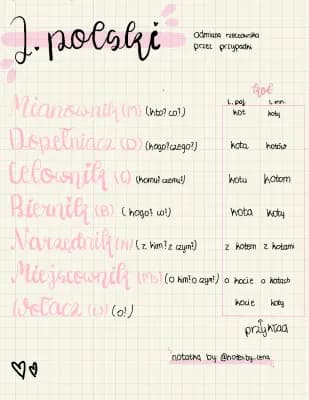 J. polski
odmiana rzeczownika
przez przypadki
kot
l. poj. l. mn.
Mianownik (M) (kto? co?) kot koty
Dopełniacz (D) (kogo? czego?) kota kotów
Celownik (C) (komu? czemu?) kotu kotom
Biernik (B) (kogo? co!) kota koty
Narzędnik (N) (z kim? z czym?) z kotem z kotami
Miejscownik (Ms) (o kim? o czym?) o kocie o kotach
Wołacz (W) (o!) kocie koty
przykład
notatka by: @notesby.lena